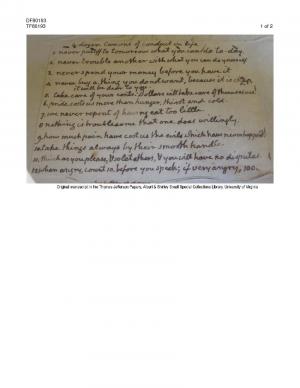 DF80193
TF80193
1 of 2
a dozen Canons of conduct in life
1. never put off to tomorrow what you can do to-day.
2. never trouble another with what you can do yourself
3. never spend your money before you have it
4. never buy a thing you do not want, because it is cheap,
it will be dear to you
5. take care of your cents: Dollars will take care of themselves!
6. pride costs us more than hunger, thirst and cold.
7. we never repent of having eat too little.
8. nothing is troublesome that one does willingly.
9. how much pain have cost us the evils which have never happened!
10. take things always by their smooth handle.
11. think as you please, & so let others, & you will have no disputes.
12. when angry, count 10. before you speak; if very angry, 100.
Original manuscript in the Thomas Jefferson Papers, Albert & Shirley Small Special Collections Library, University of Virginia